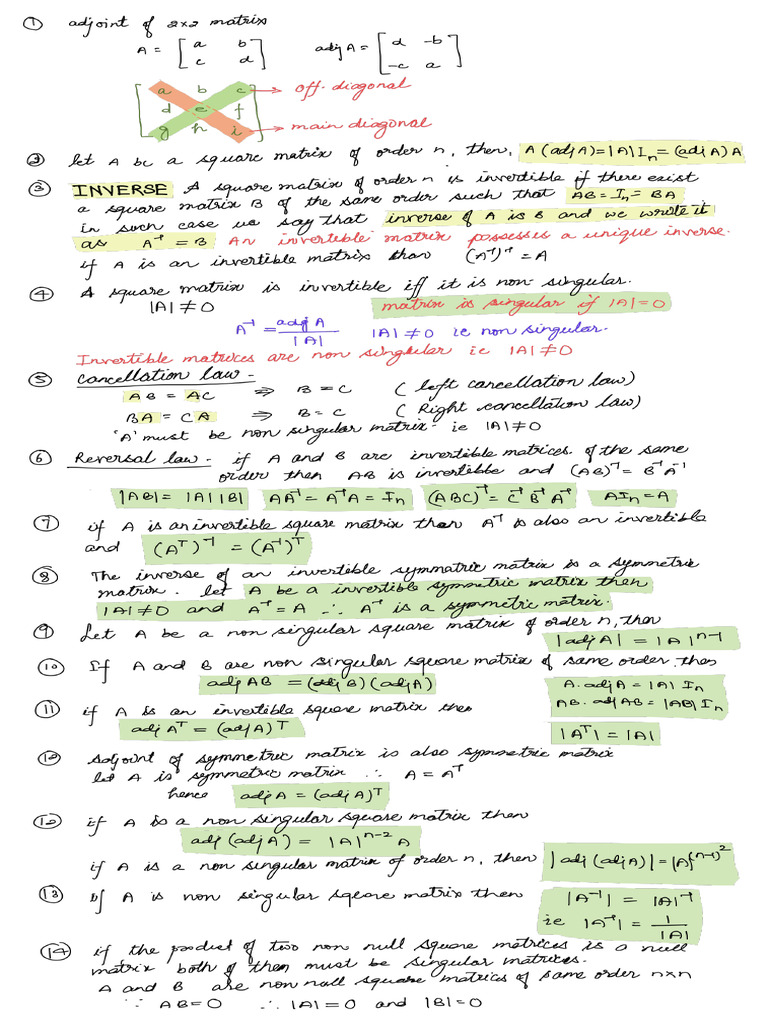 ① adjoint of 2x2 matrix
A = [ a b ; c d ] adj A = [ d -b ; -c a ]
[ a b c ; d e f ; g h i ]
→ off-diagonal
→ main diagonal
② let A be a square matrix of order n, then, A (adj A) = |A| Iₙ = (adj A) A
③ INVERSE A square matrix of order n is invertible if there exist
a square matrix B of the same order such that AB = Iₙ = BA
in such case we say that inverse of A is B and we write it
as A⁻¹ = B An invertible matrix possesses a unique inverse.
if A is an invertible matrix than (A⁻¹)⁻¹ = A
④ A square matrix is invertible iff it is non-singular.
|A| ≠ 0 matrix is singular if |A| = 0
A⁻¹ = adj A / |A| |A| ≠ 0 ie non singular.
Invertible matrices are non singular ie |A| ≠ 0
⑤ Cancellation law -
AB = AC ⇒ B = C ( left cancellation law)
BA = CA ⇒ B = C ( Right cancellation law)
'A' must be non singular matrix - ie |A| ≠ 0
⑥ Reversal law - if A and B are invertible matrices of the same
order then AB is invertible and (AB)⁻¹ = B⁻¹A⁻¹
|AB| = |A| |B| AA⁻¹ = A⁻¹A = Iₙ (ABC)⁻¹ = C⁻¹B⁻¹A⁻¹ AIₙ = A
⑦ if A is an invertible square matrix than Aᵀ is also an invertible
and (Aᵀ)⁻¹ = (A⁻¹)ᵀ
⑧ The inverse of an invertible symmatric matrix is a symmetric
matrix. let A be a invertible symmetric matrix then
|A| ≠ 0 and A⁻¹ = A ∴ A⁻¹ is a symmetric matrix.
⑨ Let A be a non singular square matrix of order n, then
|adj A| = |A|ⁿ⁻¹
⑩ If A and B are non singular square matrix of same order then
adj AB = (adj B) (adj A)
A. adj A = |A| Iₙ
AB. adj AB = |AB| Iₙ
⑪ if A is an invertible square matrix then
adj Aᵀ = (adj A)ᵀ
|Aᵀ| = |A|
⑫ Adjoint of symmetric matrix is also symmetric matrix
let A is symmetric matrix ∴ A = Aᵀ
hence adj A = (adj A)ᵀ
⑫ if A is a non singular square matrix then
adj (adj A) = |A|ⁿ⁻² A
if A is a non singular matrix of order n, then |adj (adj A)| = |A|^(n-1)²
⑬ if A is non singular sqeare matrix then |A⁻¹| = |A|⁻¹
ie |A⁻¹| = 1 / |A|
⑭ if the product of two non null square matrices is a null
matrix both of then must be singular matrices.
A and B are non null square matrices of same order n×n
∵ AB = 0 ∴ |A| = 0 and |B| = 0